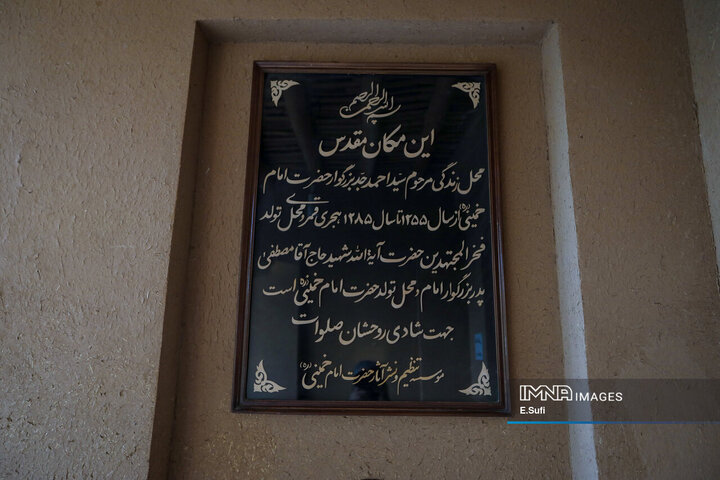 بسم الله الرحمن الرحیم
این مکان مقدس
محل زندگی مرحوم سید احمد جد بزرگوار حضرت امام
خمینی (ره) از سال ۱۲۵۵ تا سال ۱۲۸۵ هجری قمری و محل تولد
فخر المجتهدین حضرت آیة الله شهید حاج آقا مصطفی
پدر بزرگوار امام و محل تولد حضرت امام خمینی ره است
جهت شادی روحشان صلوات
موسسه تنظیم و نشر آثار حضرت امام خمینی (ره)
IMNA IMAGES
E.Sufi